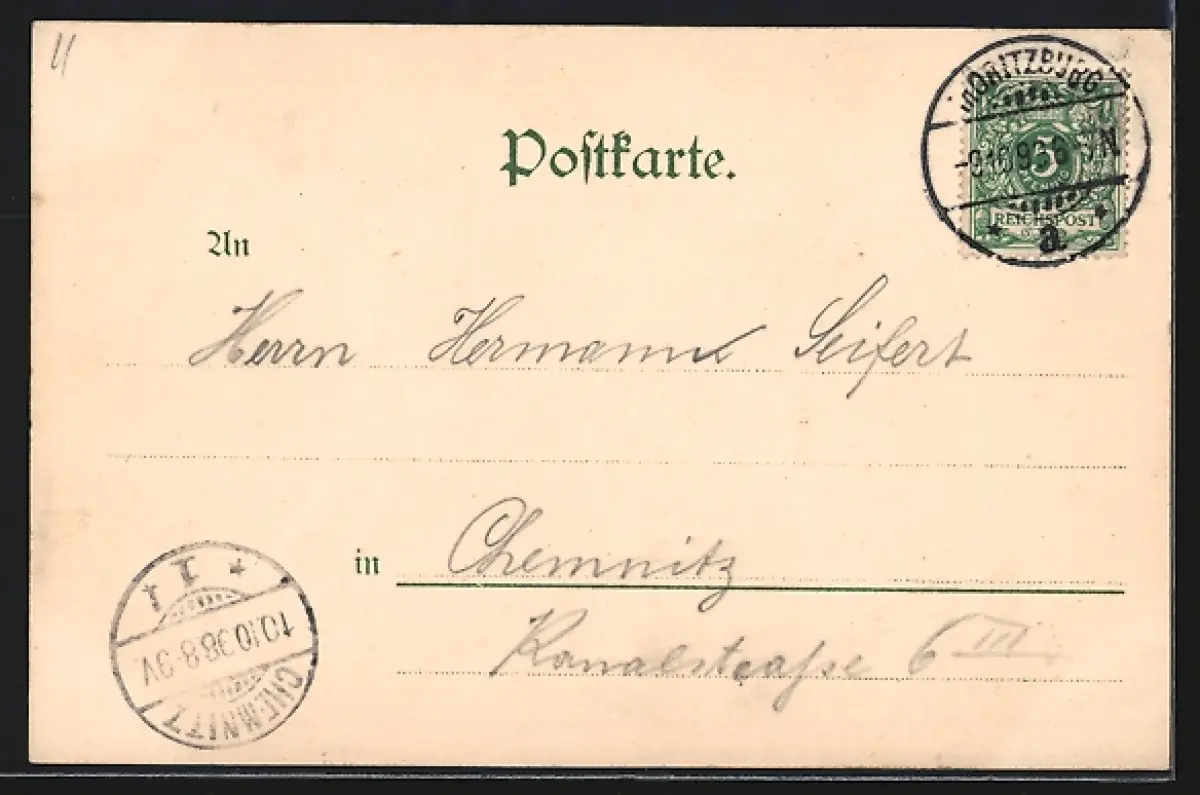 11
MORITZBURG
5
REICHSPOST
a
Postkarte.
An
Herrn Hermann Seifert
in Chemnitz
Kanalstraße 6 III
CHEMNITZ
10.10.98.8-9V.
1